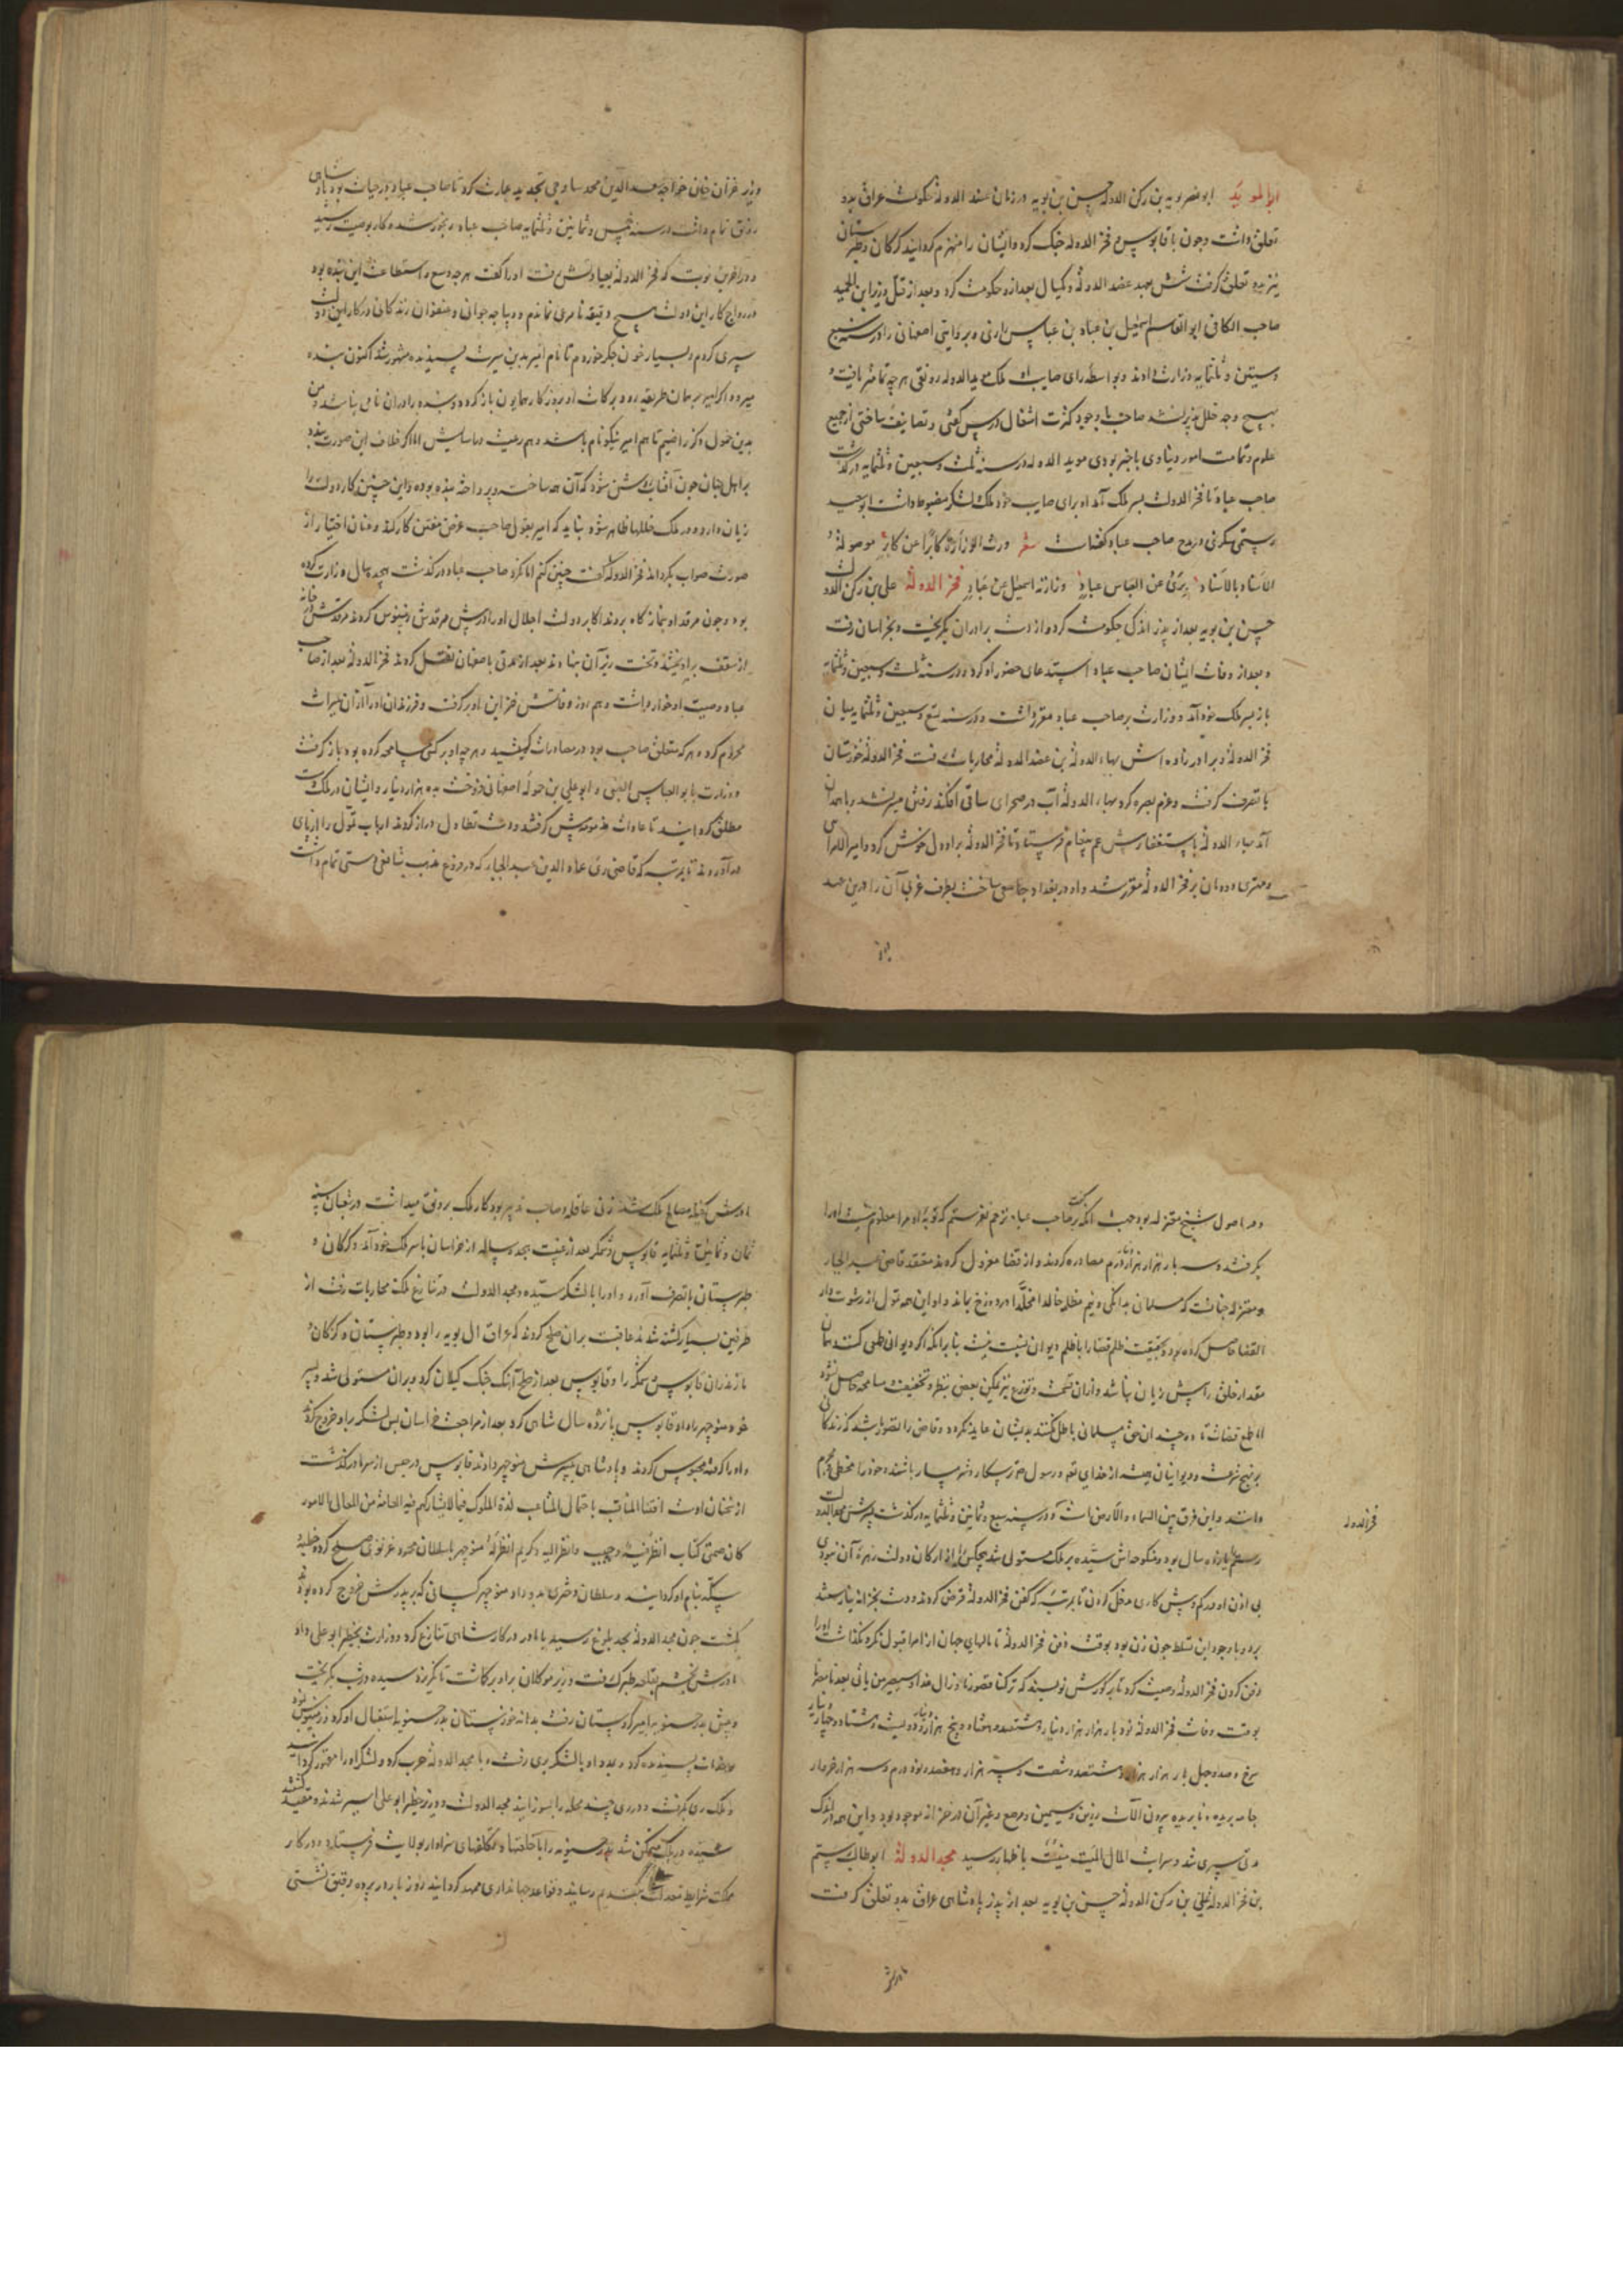 ابو نصر بویه بن رکن الدوله حسن بن بویه در زمان عضد الدوله حکومت عراق بدو
تعلق داشت و چون با قابوس و فخر الدوله جنک کرد و ایشان را منهزم کردانید کرکان و طبرستان
نیز بدو تعلق کرفت شش بعهد عضد الدوله و یکسال بعد ازو حکومت کرد و بعد از قتل وزیر ابن العمید
صاحب الکافی ابو القاسم اسمعیل بن عباد بن عباس رازی و بروایتی اصفهانی را در سنه سبع
و ستین و ثلثمایه وزارت داد و بواسطه رای صایب او ملک موید الدوله رونقی هر چه تمامتر یافت و
بهیچ وجه خلل پذیر نشد صاحب با وجود کثرت اشغال درس کفتی و تصانیف ساختی از جمیع
علوم و تمامت امور دنیاوی با خبر بودی موید الدوله در سنه ثلث و سبعین و ثلثمایه درکذشت
صاحب عباد تا فخر الدولت بسر ملک آمد او برای صایب خود ملک و لشکر مضبوط داشت ابو سعید
رستمی در مدح صاحب عباد کفت شعر ورث الوزارة کابرا عن کابر موصولة
الاسناد بالاسناد یروی عن العباس عباد وزارته اسمعیل عن عباد فخر الدولة علی بن رکن الدولت
حسن بن بویه بعد از پدر اندک حکومت کرد و از دست برادران بکریخت و بخراسان رفت
و بعد از وفات ایشان صاحب عباد استدعای حضور او کرد و در سنه ثلث و سبعین و ثلثمایه
باز بسر ملک خود آمد و وزارت بر صاحب عباد مقرر داشت و در سنه تسع و سبعین و ثلثمایه میان
فخر الدوله و برادر زاده اش بهاء الدوله بن عضد الدوله محاربات رفت فخر الدوله خوزستان
با تصرف کرفت و عزم بصره کرد بهاء الدوله آب در صحرای ساقی افکند رفتن میسر نشد با همدان
آمد بهاء الدوله باستغفار پیش عم پیغام فرستاد تا فخر الدوله برو دل خوش کرد و امیر الامرایی
و مهتری دودمان بر فخر الدوله مقرر شد و او در بغداد جامعی ساخت بطرف غربی آن را درین عهد
وزیر غزان خان خواجه سعد الدین محمد ساوجی تجدید عمارت کرد تا صاحب عباد در حیات بود پادشاهی
رونق تمام داشت در سنه خمس و ثمانین و ثلثمایه صاحب عباد رنجور شد و کار بوصیت رسید
و در آخرین نوبت که فخر الدوله بعیادتش رفت او را کفت هر چه وسع و استطاعت این بنده بود
در رواج کار این دولت هیچ دقیقه نامرعی نماندم و دیباجه جوانی و عنفوان زندکانی در کار این دولت
سپری کردم و بسیار خون جکر خوردم تا نام امیر بدین سیرت پسندیده مشهور شد اکنون بنده
میرود اکر امیر بر همان طریقه رود برکات او بروزکار همایون باز کردد و بنده را در آن نامی نباشد و من
بدین خمول ذکر راضیم تا هم امیر نیکونام باشد و هم رعیت در آسایش اما اکر خلاف این صورت بندد
بر اهل جهان چون آفتاب روشن شود که آن همه ساخته و پرداخته بنده بوده و این چنین کار دولت را
زیان دارد و در ملک خللها ظاهر شود نباید که امیر بقول صاحب غرض مفتن کار کند و عنان اختیار از
صورت صواب بکرداند فخر الدوله کفت چنین کنم اما نکرد صاحب عباد درکذشت هجده سال وزارت کرده
بود و چون مرقد او بنماز کاه بردند اکابر دولت اجلال او را در پیش مرقدش زمین بوس کردند مرقدش در خانه
از سقف بیاویختند و تخت زیر آن بنهادند بعد از مدتی باصفهان نقل کردند فخر الدوله بعد از صاحب
عباد وصیت او خوار داشت و هم روز وفاتش خزاین او برکرفت و فرزندان او را از آن میراث
محروم کرد و هر که متعلق صاحب بود در مصادرات کشید و هر چه او بر کسی مسامحه کرده بود باز کرفت
و وزارت بابو العباس الضبی و ابو علی بن حموله اصفهانی فروخت بده هزار دینار و ایشان در ملک دست
مطلق کردانیدند تا عادات مذمومه پیش کرفتند و دست تطاول دراز کردند ارباب تمول را از پای
در آوردند تا بمرتبه که قاضی ری عماد الدین عبد الجبار که در فروع مذهب شافعی دستی تمام داشت
و در اصول شیخ معتزله بود جهت آنکه بر صاحب عباد ترحم نفرستم که توبه او مرا معلوم نیست او را
بکرفتند و سه بار هزار هزار درم مصادره کردند و از قضا معزول کردند معتقد قاضی عبد الجبار
و معتزله چنانست که مسلمان بدانکی و نیم مظلمه خالدا مخلدا در دوزخ بماند و او این همه تمول از رشوت دار
القضا حاصل کرده بود و بحقیقت ظلم قضا را با ظلم دیوان نسبت نیست بنابر آنکه اکر دیوانی ظلمی کند همان
مقدار خلق را بیش زیان نباشد و از آن قسمت و توزیع نیز ممکن بعضی بنظر و تخفیف و مسامحه حاصل شود
اما طمع قضات تا ده چندان حق مسلمانی باطل نکند بدیشان عاید نکردد و قاضی را تصور باشد که زندکانی
بر نهج شرعست و دیوانیان همیشه از خدای تعه و رسول صع ترسکار و شرمسار باشند و خود را مخطی و مجرم
دانند و این فرق بین السماء و الارض است و در سنه سبع و ثمانین و ثلثمایه درکذشت پسرش مجد الدولت
رستم یازده سال بود و منکوحه اش سیده بر ملک مستولی شد هیچکس را از ارکان دولت زهره آن نبودی
بی اذن او در کم و بیش کاری مدخل کردن تا بمرتبه که کفن فخر الدوله قرض کردند و دست بخزانه نیارستند
برد و با وجود این تسلط چون زن بود بوقت دفن فخر الدوله تا مالهای جهان از امرا قبول نکرد نکذاشت او را
دفن کردن فخر الدوله وصیت کرد تا بر کورش نویسند که ترکنا قصورنا و زال غذاء سیعمر من یاتی بعدنا معنا
بوقت وفات فخر الدوله نود بار هزار هزار دینار و هشتصد و هفتاد و پنج هزار دینار و دویست و هشتاد و چهار دینار
سرخ و صد و چهل بار هزار هزار و هشتصد و شصت و سه هزار و هفتصد و نود درم و سه هزار خروار
جامه بریده و نابریده بیرون آلات زرین و سیمین و مرصع و غیر آن در خزانه موجود بود و این همه در اندک
مدتی سپری شد و سر اب المال المیت میت باظهار رسید مجد الدولة ابو طالب رستم
بن فخر الدوله علی بن رکن الدوله حسن بن بویه بعد از پدر پادشاهی عراق بدو تعلق کرفت
فخر الدوله
مادرش کفیله مصالح ملک شد زنی عاقله و صاحب تدبیر بود کار ملک برونق میداشت در شعبان سنه
ثمان و ثمانین و ثلثمایه قابوس وشمکیر بعد از غیبت هجده ساله از خراسان با سر ملک خود آمد و کرکان و
طبرستان با تصرف آورد و او را با لشکر سیده و مجد الدولت در تنازع ملک محاربات رفت از
طرفین بسیار کشته شدند عاقبت بران صلح کردند که عراق آل بویه را بود و طبرستان و کرکان و
مازندران قابوس وشمکیر را و قابوس بعد از صلح آهنک جنک کیلان کرد و بران مستولی شد و پسر
خود منوچهر را داد قابوس پانزده سال شاهی کرد بعد از مراجعت خراسان پس لشکر برو خروج کردند
و او را کرفته محبوس کردند و پادشاهی بپسرش منوچهر دادند قابوس در حبس از سرما درکذشت
از سخنان اوست اقتناء المناقب باحتمال المتاعب لذة الملوک فیما لا یشارکهم فیه العامة من المعالی الامور
منوچهر با سلطان محمود غزنوی صلح کرد و خطبه و
سکه بنام او کردانید و سلطان دختری بدو داد منوچهر کسانی که بر پدرش خروج کرده بودند
بکشت چون مجد الدوله بحد بلوغ رسید با مادر در کار شاهی تنازع کرد و وزارت بخطیر ابو علی داد
مادرش بخشم بقلعه طبرک رفت وزیر موکلان برو برکماشت تا کریزد سیده بشب بکریخت
و پیش بدر حسنویه امیر کردستان رفت بدانه خوزستان بدر حسنویه استقبال او کرد و زمین بوس نمود
بدر او با لشکر بری رفت و با مجد الدوله حرب کرد و لشکر او را مقهور کردانید
و ملک ری بکرفت و در ری چند محله را بسوزانید مجد الدولت و وزیر خطیر ابو علی اسیر شدند و مقید کشتند
سیده در ملک متمکن شد بدر حسنویه را با خلعتها و تکلفهای سزاوار بولایت فرستاد و در کار
مملکت شرایط معدلت بتقدیم رسانید و قواعد جهانداری ممهد کردانید و روز بار در پرده رقیق نشستی